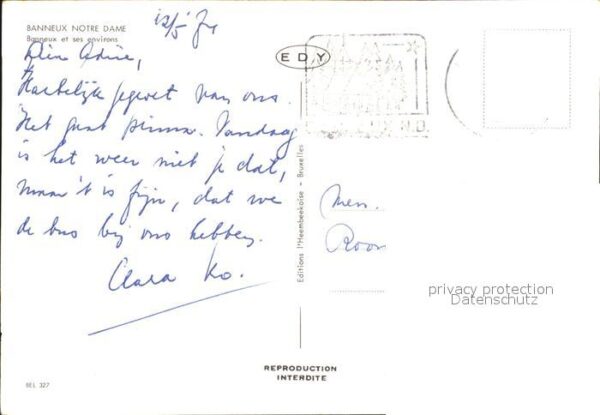 BANNEUX NOTRE DAME
Banneux et ses environs
Hartelijk gegroet van ons.
Het gaat prima. Vandaag
is het weer niet je dat,
maar 't is fijn, dat we
de bus bij ons hebben.
Clara Ko.
EDY
Editions l'Heembeekoise - Bruxelles
Men.
Room
privacy protection
Datenschutz
REPRODUCTION
INTERDITE
BEL 327